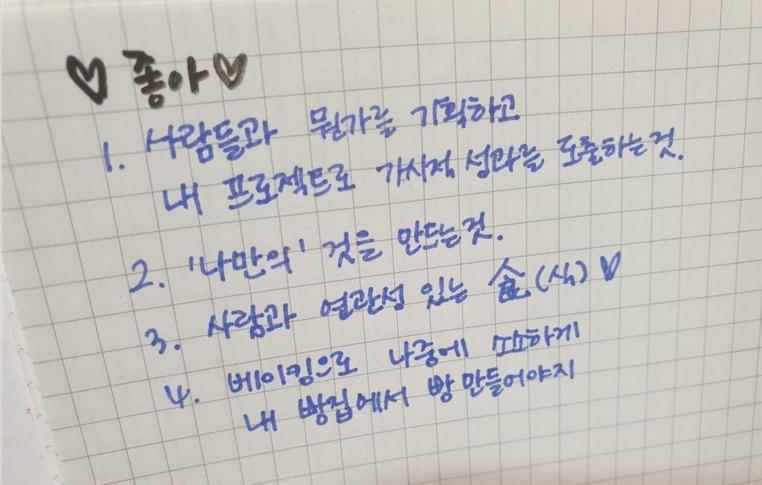 ♡ 좋아 ♡
1. 사람들과 뭔가를 기획하고
내 프로젝트로 가시적 성과를 도출하는것.
2. '나만의' 것을 만드는것.
3. 사람과 연관성 있는 食(식) ♡
4. 베이킹으로 나중에 소소하게
내 빵집에서 빵 만들어야지